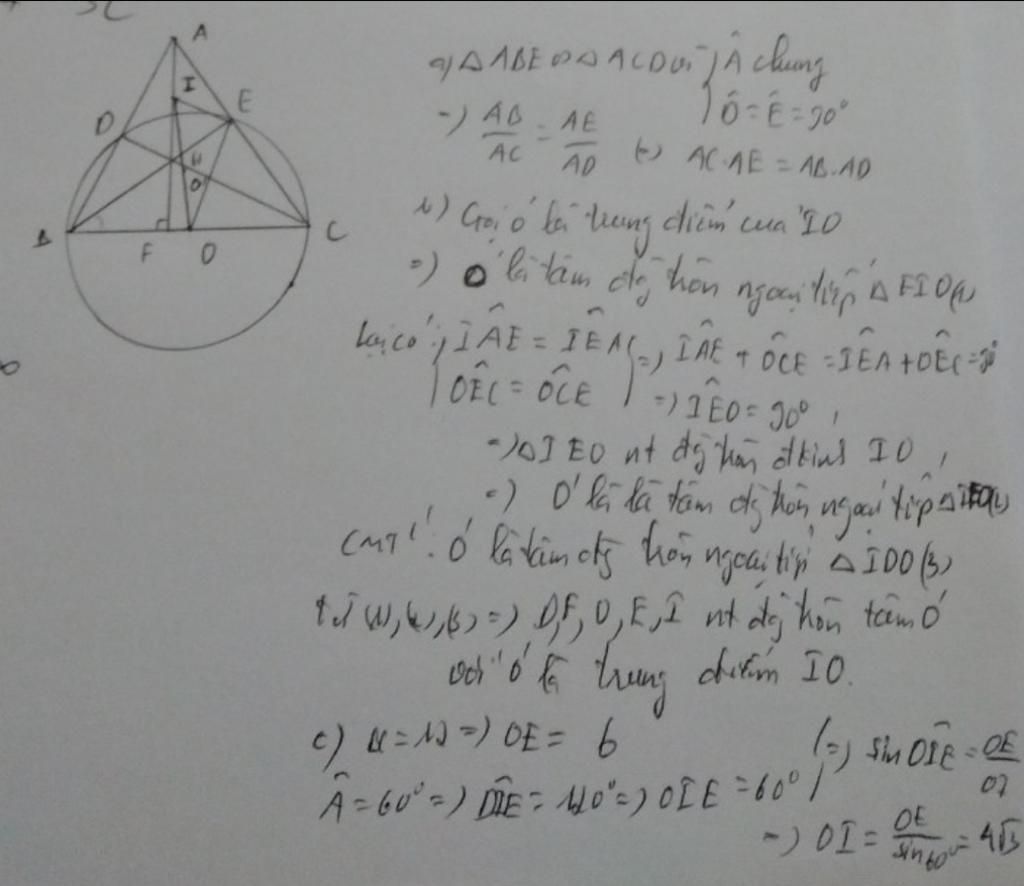 A
I
E
D
H
O
B
F
O
C
a) △ABE ∽ △ACD vì { Â chung
D̂ = Ê = 90°
=) AB/AC = AE/AD (=) AC.AE = AB.AD
b) Gọi O' là trung điểm của IO
=) O' là tâm đg tròn ngoại tiếp △FIO (1)
Lại có: { IÂE = IÊA
OÊC = OĈE } =) IÂE + OĈE = IÊA + OÊC = 90°
=) IÊO = 90°,
=) △IEO nt đg tròn đkính IO,
=) O' là là tâm đg tròn ngoại tiếp △IEO (2)
CMT²: O' là tâm đg tròn ngoại tiếp △IDO (3)
Từ (1), (2), (3) =) D, F, O, E, I nt đg tròn tâm O'
với O' là trung điểm IO.
c) BC = 12 =) OE = 6
Â = 60° =) DÎE = 120° =) OÎE = 60° } =) sin OÎE = OE/OI
=) OI = OE/sin60° = 4√3